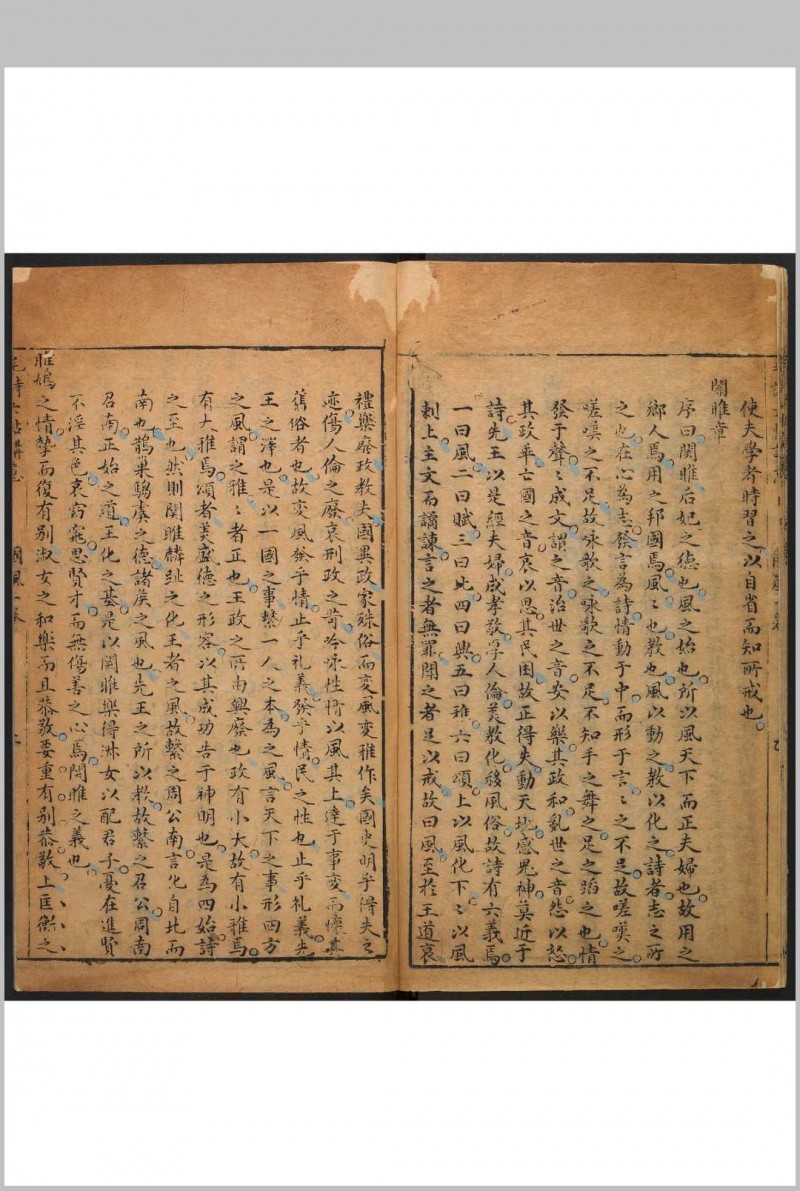 使夫學者時習之以自省而知所戒也
關雎章
序曰関雎后妃之德也風之始也所以風天下而正夫婦也故用之
鄉人焉用之邦國焉風〻也教也風以動之教以化之詩者志之所
之也在心為志發言為詩情動于中而形于言〻之不足故嗟嘆之
嗟嘆之不足故咏歌之咏歌之不足不知手之舞之足之蹈之也情
發于聲〻成文謂之音治世之音安以樂其政和亂世之音怨以怒
其政乖亡國之音哀以思其民困故正得失動天地感鬼神莫近于
詩先王以是經夫婦成孝敬厚人倫美教化移風俗故詩有六義焉
一曰風二曰賦三曰比四曰興五曰雅六曰頌上以風化下〻以風
刺上主文而譎諫言之者無罪聞之者足以戒故曰風至於王道衰
禮樂廢政教失國異政家殊俗而變風變雅作矣國史明乎得失之
迹傷人倫之廢哀刑政之苛吟咏性情以風其上達于事變而懷其
舊俗者也故變風發乎情止乎礼義發乎情民之性也止乎礼義先
王之澤也是以一國之事繫一人之本為之風言天下之事形四方
之風謂之雅〻者正也王政之所由興廢也政有小大故有小雅焉
有大雅焉頌者美盛德之形容以其成功告于神明也是為四始詩
之至也然則関雎麟趾之化王者之風故繫之周公南言化自北而
南也鵲巢騶虞之德諸侯之風也先王之所以教故繫之召公周南
召南正始之道王化之基是以関雎樂得淑女以配君子憂在進賢
不淫其色哀窈窕思賢才而無傷善之心焉関雎之義也
雎鳩之情摯而復有别淑女之和樂而且恭敬要重有别恭敬上匡衡之
國風一卷